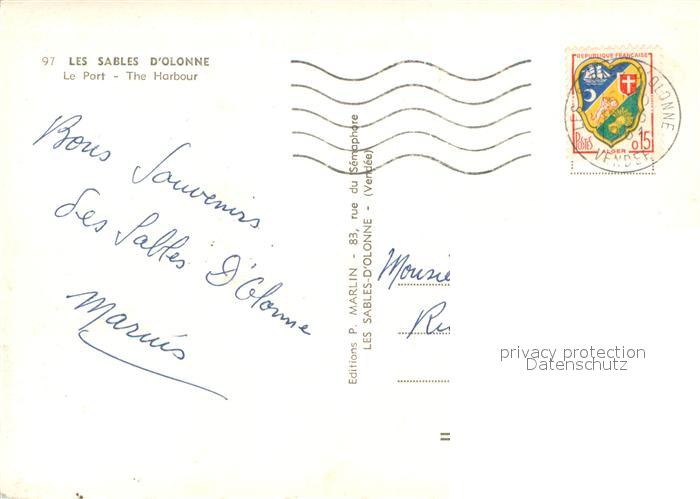 97 LES SABLES D'OLONNE
Le Port - The Harbour
REPUBLIQUE FRANÇAISE
POSTES
ALGER
0,15
OLONNE
VENDEE
Bons Souvenirs
des Sables D'Olonne
Marius
Editions P. MARLIN - 83, rue du Sémaphore
LES SABLES-D'OLONNE - (Vendée)
Monsie
Ru
privacy protection
Datenschutz